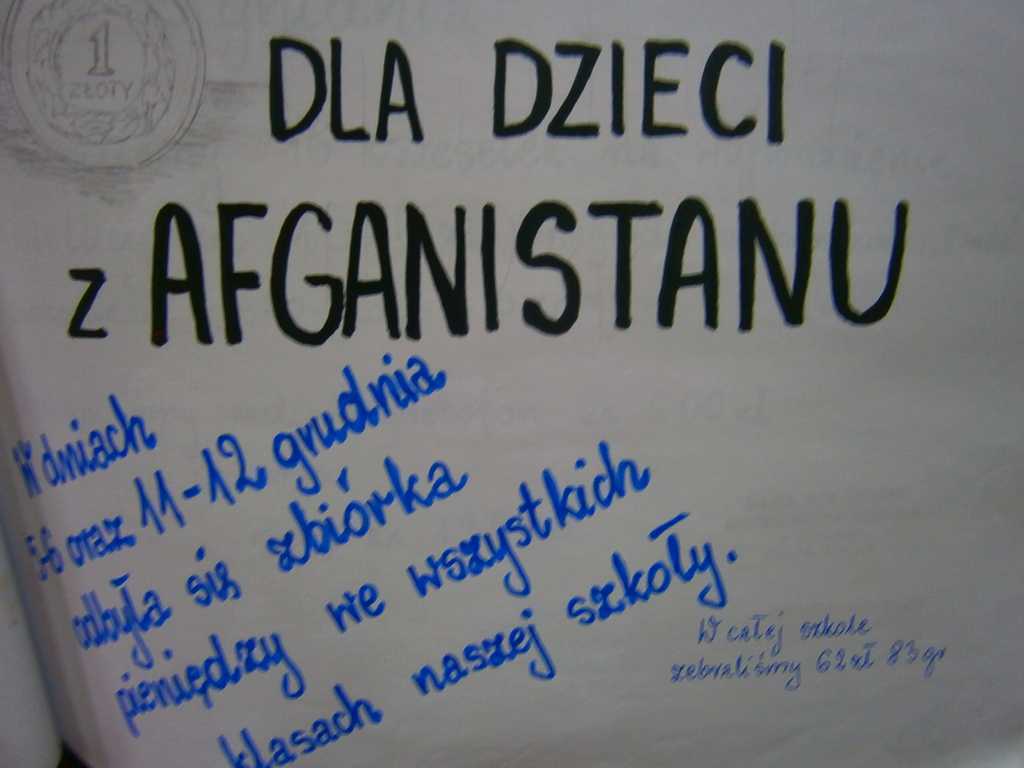 1
ZŁOTY
DLA DZIECI
z AFGANISTANU
W dniach
5-6 oraz 11-12 grudnia
odbyła się zbiórka
pieniędzy we wszystkich
klasach naszej szkoły.
W całej szkole
zebraliśmy 62 zł 83 gr